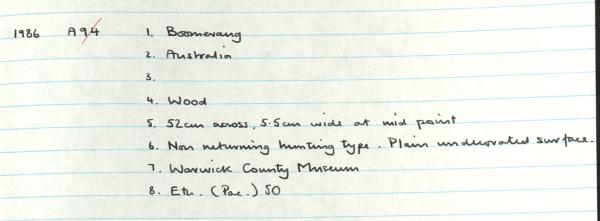 1986 A94 1. Boomerang
2. Australia
3.
4. Wood
5. 52cm across, 5.5cm wide at mid point
6. Non returning hunting type. Plain undecorated surface.
7. Warwick County Museum
8. Eth. (Pac.) 50